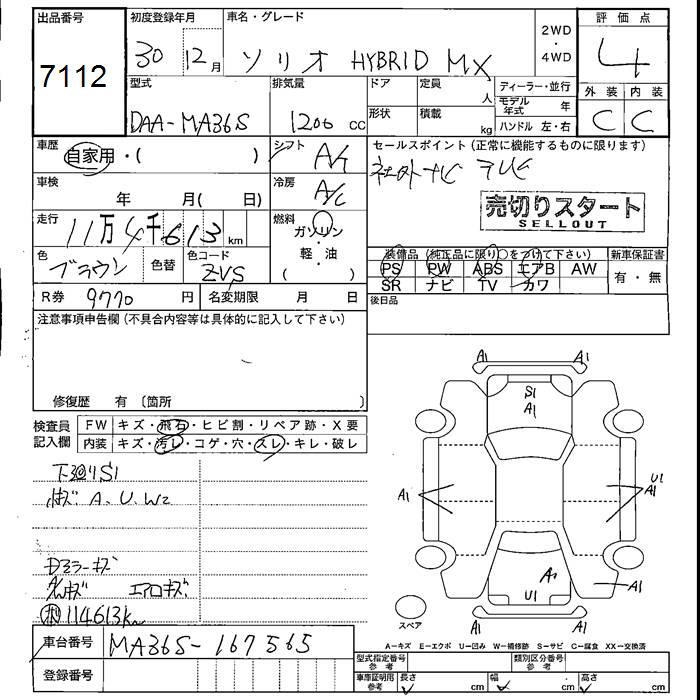 出品番号
7112
初度登録年月
30 12月
車名・グレード
ソリオ HYBRID MX
2WD
・
4WD
評価点
4
型式
DAA-MA36S
排気量
1200 cc
ドア
定員
人
形状
積載
kg
ディーラー・並行
モデル年式 年
ハンドル 左・右
外装
内装
C C
車歴
自家用・( )
シフト
A/T
セールスポイント (正常に機能するものに限ります)
ナビ テレビ
車検
年 月( 日)
冷房
A/C
売切りスタート
SELLOUT
走行
11万4千613km
燃料
ガソリン・
軽・油
( )
色
ブラウン
色替
色コード
ZVS
装備品 (純正品に限り○をつけて下さい)
新車保証書
PS PW ABS エアB AW
SR ナビ TV カワ
有・無
R券 9770 円
名変期限 月 日
後日品
注意事項申告欄 (不具合内容等は具体的に記入して下さい)
修復歴 有 〔箇所
検査員
記入欄
FW キズ・飛石・ヒビ割・リペア跡・X要
内装 キズ・汚レ・コゲ・穴・スレ・キレ・破レ
下廻りS1
A、U、W2
Dミラーキズ
エアロキズ
114613km
A1 A1
S1
A1
A1
U1
A1
A1
U1
A1
A1 A1
スペア
車台番号
MA36S-167565
登録番号
A=キズ E=エクボ U=凹み W=補修跡 S=サビ C=腐食 XX=交換済
型式指定番号
参考
類別区分番号
参考
車庫証明用
参考
長さ cm
幅 cm
高さ cm